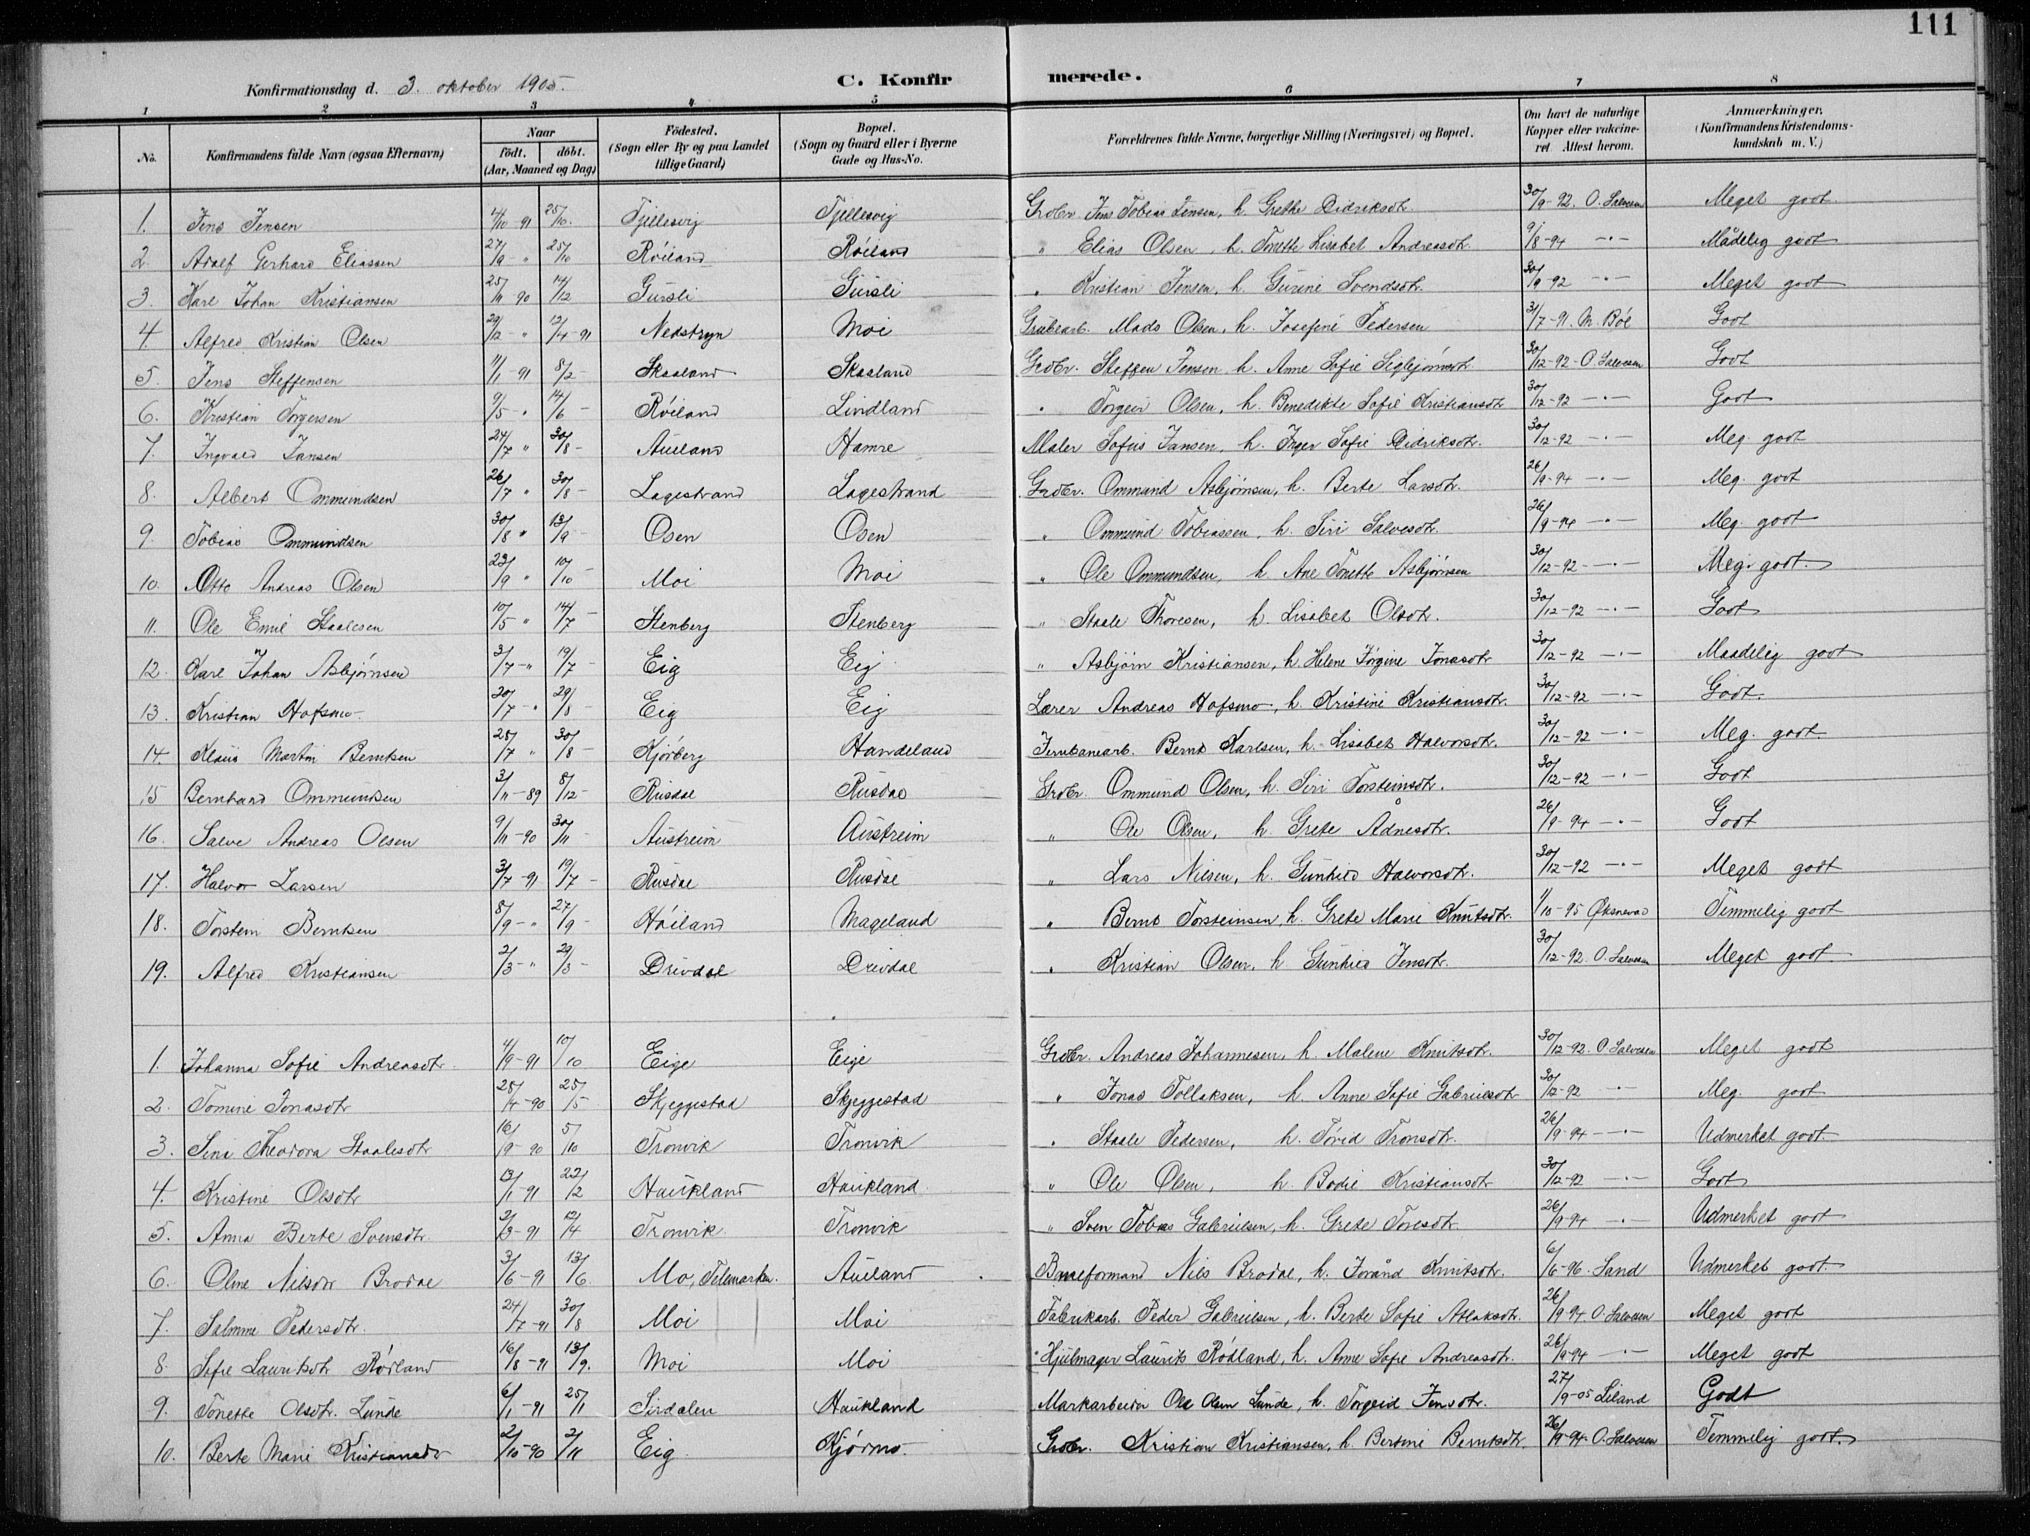 111
Konfirmationsdag d. 3. oktober 1905.
C. Konfirmerede.
1 2 3 4 5 6 7 8
No. | Konfirmandens fulde Navn (ogsaa Efternavn) | Naar født. døbt. (Aar, Maaned og Dag) | Fødested. (Sogn eller By og paa Landet tillige Gaard) | Bopæl. (Sogn og Gaard eller i Byerne Gade og Hus-No. | Forældrenes fulde Navne, borgerlige Stilling (Næringsvei) og Bopæl. | Om havt de naturlige Kopper eller vakcineret. Attest herom. | Anmærkninger. (Konfirmandens Kristendomskundskab m. V.)
1. Jens Jensen 4/10 91 25/10 Tjellesvig Tjellesvig Grdbr. Jens Tobias Jensen, h. Grethe Didriksdtr 30/9-92. O. Salvesen Meget godt
2. Adolf Gerhard Eliassen 27/9 " 25/10 Røiland Røiland " Elias Olsen, h. Tonette Lisabet Andreasdtr 9/8-94 -"- Mådelig godt
3. Karl Johan Kristiansen 25/11 90 14/12 Gursli Gursli " Kristian Jensen, h. Gurine Svendsdtr. 30/9-92 -"- Meget godt
4. Alfred Kristian Olsen 29/12 - " 12/4-91 Nedstryn Moi Grubearb. Mads Olsen, h. Josefine Pedersen 31/7-91. M. Bøe Godt
5. Jens Steffensen 11/1-91 8/2- Skaaland Skaaland Grdbr. Steffen Jensen h. Anne Sofie Sigbjørnsdtr 30/12-92- O. Salvesen Godt
6. Kristian Torgersen 9/5- " 14/6- Røiland Lindland " Torgeir Olsen, h. Benedikte Sofie Kristiansdtr 30/12-92 -"- Godt
7. Ingvald Jansen 24/7 " 30/8- Aueland Hamre Maler Sofus Jansen, h. Inger Sofie Didriksdtr. 30/12-92 -"- Meg. godt
8. Albert Ommundsen 26/7 " 30/8- Lagestrand Lagestrand Grdbr. Ommund Asbjørnsen, h. Berte Larsdtr. 26/9-94 -"- Meg. godt
9. Tobias Ommundsen 30/8 " 13/9- Osen Osen " Ommund Tobiassen, h. Siri Salvesdtr. 26/9-94 -"- Meg. godt
10. Otto Andreas Olsen 23/9 " 10/10- Moi Moi " Ole Ommundsen, h Ane Tonette Asbjørnsen 30/12-92 -"- Meg. godt.
11. Ole Emil Staalesen 10/5 " 14/7- Stenberg Stenberg " Staale Thoresen, h Lisabet Olsdtr. 30/12-92 -"- Godt
12. Karl Johan Asbjørnsen 3/7-" 19/7- Eig Eig " Asbjørn Kristiansen, h. Helene Jørgine Jonasdtr 30/12-92 -"- Maadelig godt
13. Kristian Hofsmo 20/7- " 29/8- Eig Eig Lærer Andreas Hofsmo, h. Kristine Kristiansdtr. 30/12-92 -"- Godt.
14. Klaus Martin Berntsen 28/7 " 30/8- Kjørberg Handeland Jernbanearb. Bernt Karlsen, h. Lisabet Halvorsdtr. 30/12-92 -"- Meg. godt.
15 Bernhard Ommundsen 3/11-89 8/12- Rusdal Rusdal Grdbr. Ommund Olsen, h. Siri Torsteinsdtr. 30/12-92 -"- Godt
16. Salve Andreas Olsen 9/11-90 30/11- Austreim Austreim " Ole Olsen, h. Grete Ådnesdtr. 26/9-94 -"- Godt
17. Halvor Larsen 3/7-91 19/7- Rusdal Rusdal " Lars Nilsen, h. Gunhild Halvorsdtr. 30/12-92 -"- Meget godt
18. Torstein Berntsen 8/9-" 27/9- Høiland Mageland " Bernt Torsteinsen, h. Grete Marie Knutsdtr. 1/10-95 Øksnevad Temmelig godt
19. Alfred Kristiansen 2/3-" 29/3- Drivdal Drivdal " Kristian Olsen, h Gunhild Jensdtr. 30/12-92. O. Salvesen Meget godt
1. Johanna Sofie Andreasdtr. 4/9-91 10/10 Eige Eige Grdbr. Andreas Johannesen, h. Malene Knutsdtr. 30/12-92. O. Salvesen Meget godt
2. Tomine Jonasdtr 28/4-90 25/5 Skjeggestad Skjeggestad " Jonas Tollaksen, h. Anne Sofie Gabrielsdtr 30/12-92 -"- Meg. godt
3. Sina Theodora Staalesdtr 16/9-90 5/10 Tronvik Tronvik " Staale Pedersen, h. Torid Tronsdtr. 26/9-94 -"- Udmerket godt.
4. Kristine Olsdtr 13/1-91 22/2 Haukland Haukland " Ole Olsen, h. Bodil Kristiansdtr 30/12-92 -"- Godt
5. Anna Berte Svensdtr 2/3-91 12/4 Tronvik Tronvik " Sven Tobias Gabrielsen, h. Grete Toresdtr. 26/9-94 -"- Udmerket godt
6. Oline Nilsdtr Brodal 3/6-91 13/6 Mo, Telemarken. Aueland Baneformand Nils Brodal, h. Jorånd Knutsdtr. 6/6-96. Sand Udmerket godt.
7. Salmine Pedersdtr. 24/7-91 30/8 Moi Moi Fabrikarb. Peder Gabrielsen, h. Berte Sofie Atlaksdtr. 26/9-94. O. Salvesen Meget godt
8. Sofie Lauritsdtr Rødland 16/8-91 13/9. Moi Moi Hjulmager Laurits Rødland, h. Anne Sofie Andreasdtr. 26/9-94 -"- Meget godt
9. Tonette Olsdtr. Lunde 6/1-91 25/1 Sirdalen Haukland Markarbeider Ole Olsen Lunde, h. Torgerid Jensdtr. 27/9-05 Liland Godt
10. Berte Marie Kristiansdtr 2/10-90 2/11 Eig Kjørmo Grdbr. Kristian Kristiansen, h Bertine Berntsdtr. 26/9-94. O. Salvesen Temmelig godt.